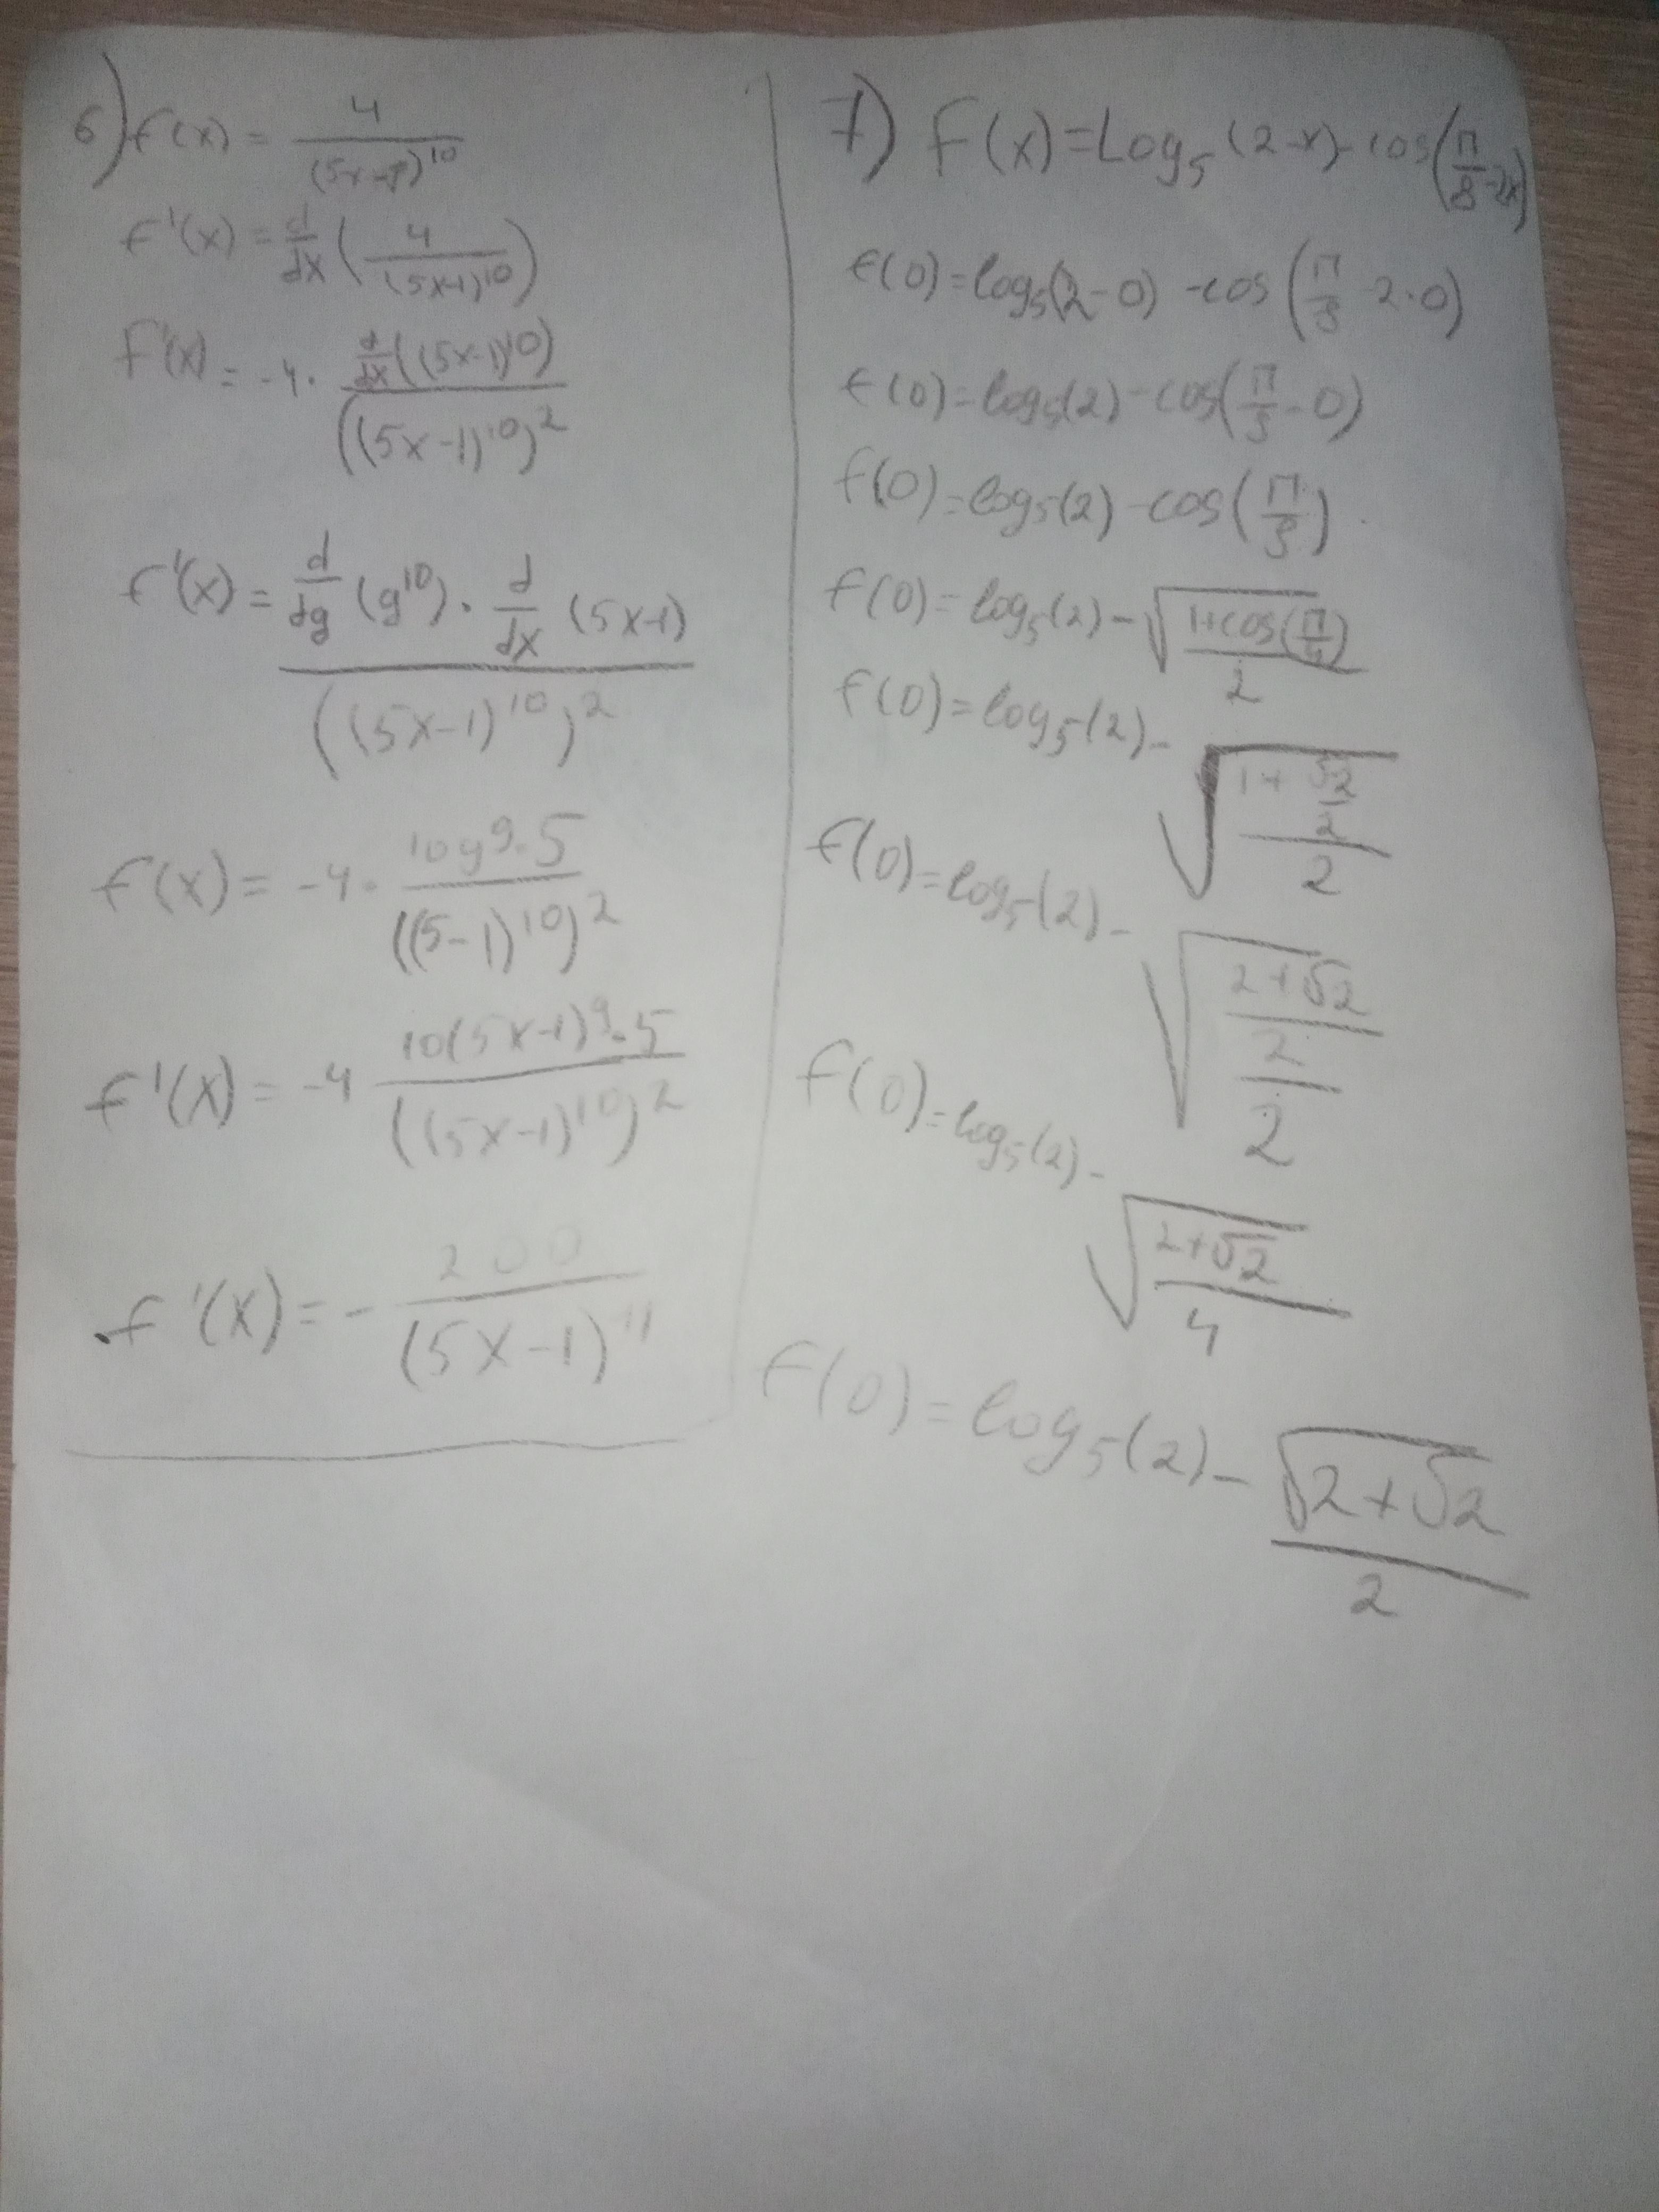 6) f(x) = 4/(5x-1)^10
f'(x) = d/dx (4/(5x-1)^10)
f'(x) = -4 · d/dx((5x-1)^10)/((5x-1)^10)^2
f'(x) = d/dg (g^10) · d/dx (5x-1)/((5x-1)^10)^2
f(x) = -4 · 10g^9·5/((5-1)^10)^2
f'(x) = -4 10(5x-1)^9·5/((5x-1)^10)^2
f'(x) = - 200/(5x-1)^11
7) f(x) = Log₅(2-x) - cos(π/8 - 2x)
f(0) = log₅(2-0) - cos(π/8 2·0)
f(0) = log₅(2) - cos(π/8 - 0)
f(0) = log₅(2) - cos(π/8)
f(0) = log₅(2) - √((1+cos(π/4))/2)
f(0) = log₅(2) - √((1+√2/2)/2)
f(0) = log₅(2) - √(((2+√2)/2)/2)
f(0) = log₅(2) - √((2+√2)/4)
f(0) = log₅(2) - √(2+√2)/2